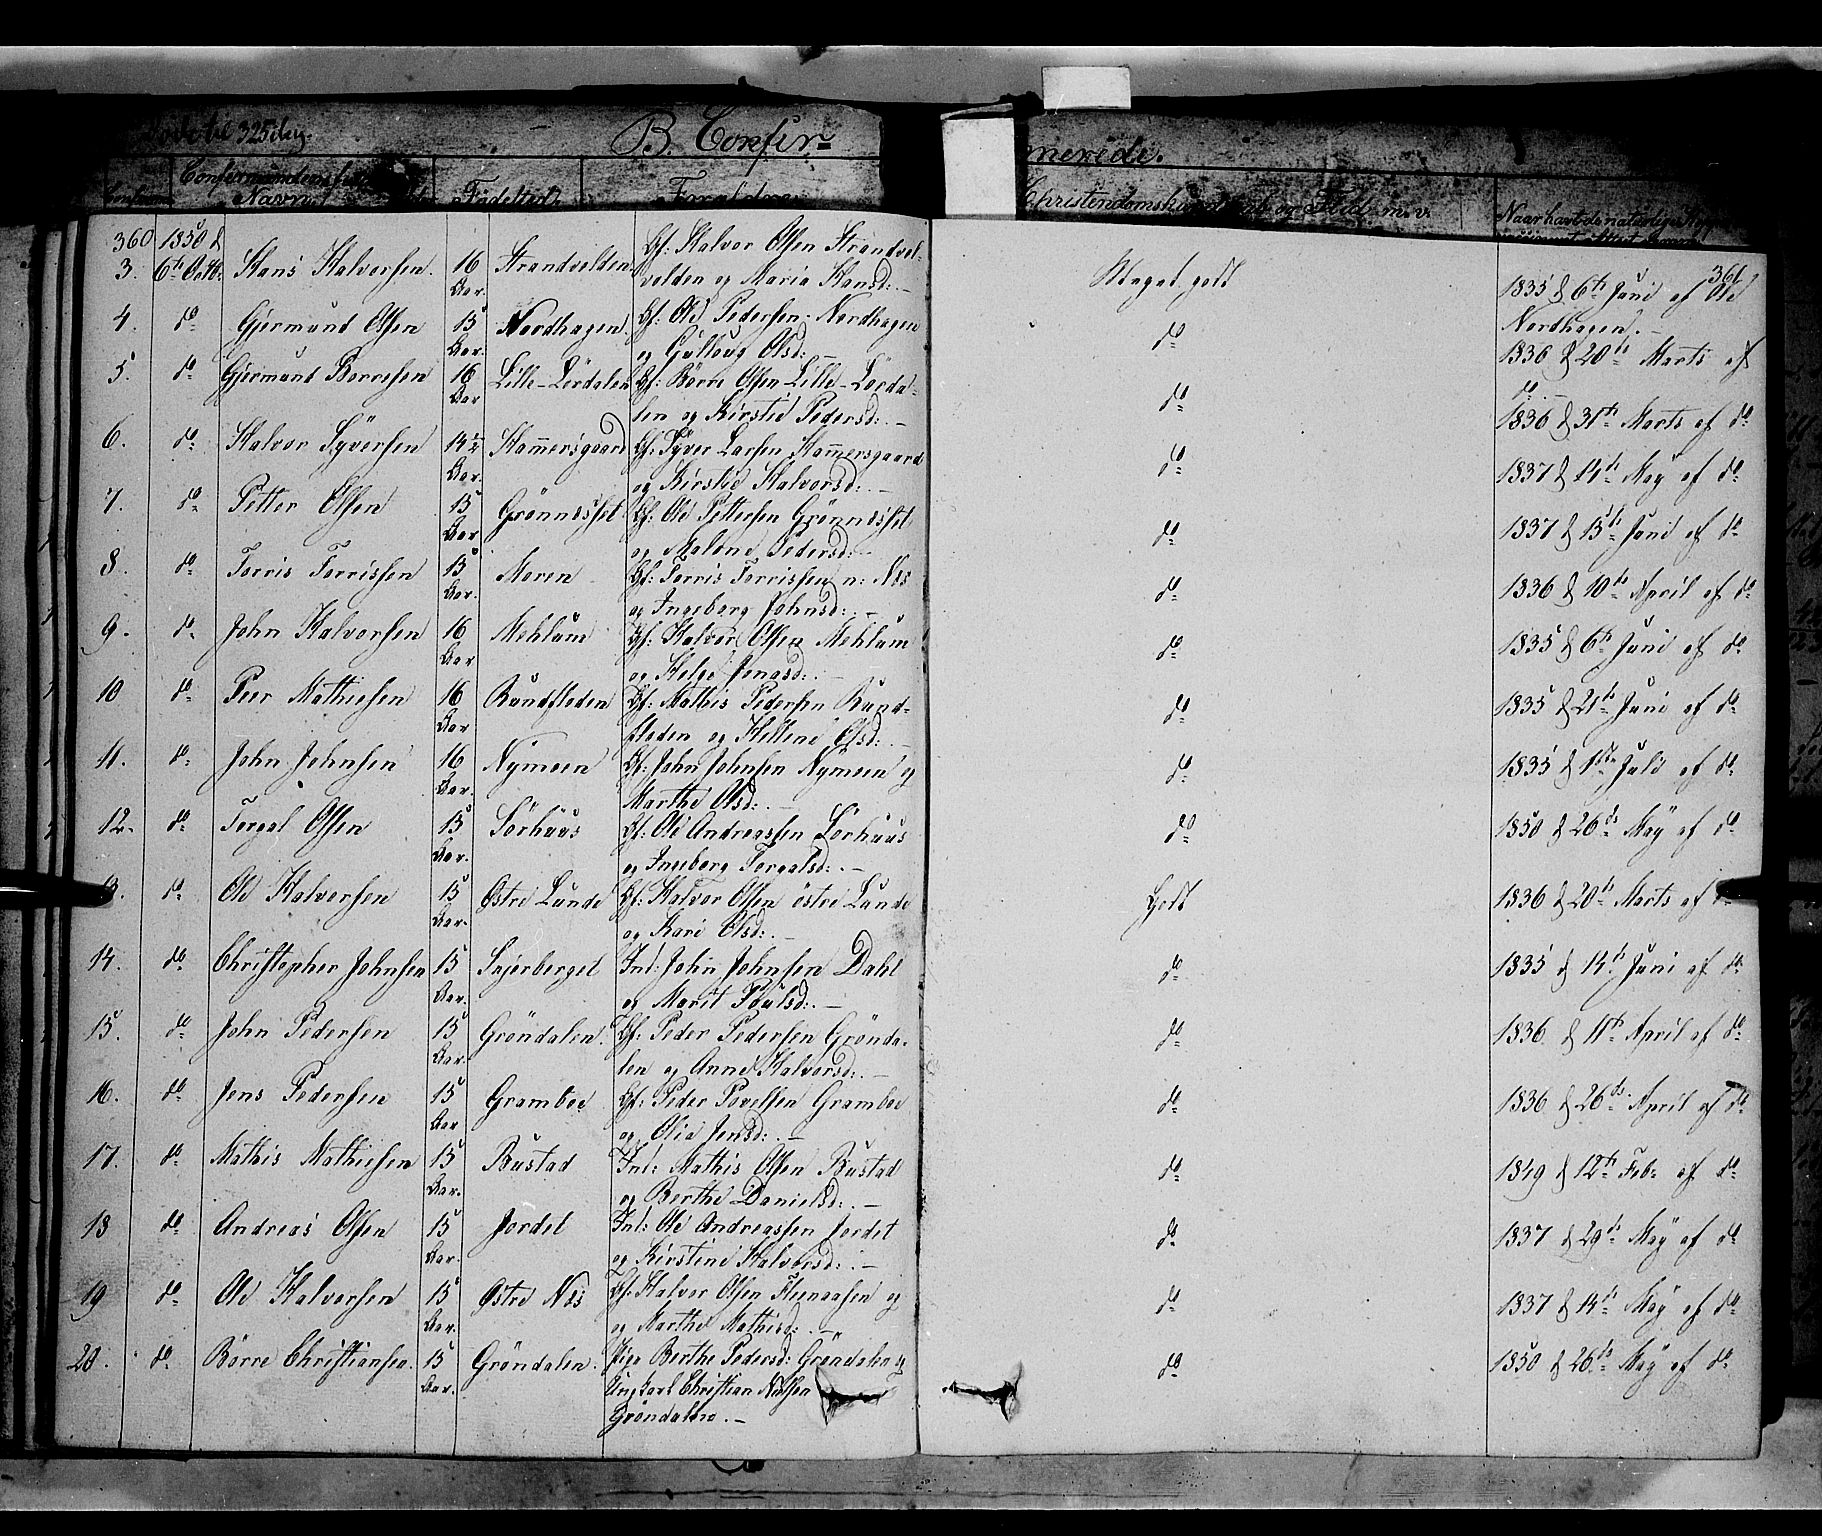 B. Confir=
merede.
Confirmandernes
Navn
Fødested
Forældre
Christendomskundskab og Flid m.v.
360
361
3. 1850 d 6te Octb: Hans Halvorsen. 16 Aar. Strandvolden Gf: Halvor Olsen Strandvol-
volden og Maria Hansd: . — Meget godt 1835 d 6te Juni af Ole
Nordhagen. —
4. do Gjermund Olsen 15 Aar. Nordhagen. Gf: Ole Pedersen Nordhagen
og Gulloug Olsd: do 1836 d 20de Marts af
do
5. do Gjermund Børresen 16 Aar Lille-Lørdalen Gf: Børre Olsen Lille-Lørda-
len og Kirstie Pedersd: . — do 1836 d 31te Marts af do
6. do Halvor Syversen 14½ Aar. Hamersgaard Gf: Syver Larsen Hamersgaard
og Kirstie Halvorsd: . — do 1837 d 14de May af do
7. do Petter Olsen 15 Aar Grønnesset Gf: Ole Pettersen Grønnesset
og Malene Pedersd: — do 1837 d 15de Juni af do
8. do Torris Torrissen 15 Aar. Moren Gf: Torris Torrissen n: Næs
og Ingeborg Johnsd: . — do 1836 d 10de April af do
9. do John Halvorsen 16 Aar Mehlum Gf: Halvor Olsen Mehlum
og Helge Jonasd: . — do 1835 d 6te Juni af do
10 do Peer Mathiesen 16 Aar. Rundfloden Gf: Mathis Pedersen Rund-
floden og Hellene Olsd: . — do 1835 d 21de Juni af do
11. do John Johnsen 16 Aar. Nymoen Gf: John Johnsen Nymoen og
Marthe Olsd: . — do 1835 d 1ste Juli af do
12. do Torgal Olsen 15 Aar. Sørhuus Gf: Ole Andreassen Sørhuus
og Ingeborg Torgalsd: . — do 1850 d 26de May af do
13. do Ole Halvorsen 15 Aar. Østre Lunde Gf: Halvor Olsen østre Lunde
og Kari Olsd: . — Godt 1836 d 20de Marts af do
14. do Christopher Johnsen 15 Aar. Snjerberget Inl: John Johnsen Dahl
og Marit Poulsd: . — do 1835 d 14de Juni af do
15. do John Pedersen 15 Aar. Grøndalen. Gf: Peder Pedersen Grønda-
len og Anne Halvorsd: . — do 1836 d 11te April af do
16. do Jens Pedersen 15 Aar Gramboe Gf: Peder Povelsen Gramboe
og Olia Jensd: . — do 1836 d 26de April af do
17. do Mathis Mathiesen 15 Aar. Bustad Inl: Mathis Olsen Bustad
og Berthe Danielsd: . — do 1849 d 12te Feb: af do
18 do Andreas Olsen 15 Aar. Jordet Inl: Ole Andreassen Jordet
og Kirstine Halvorsd: . — do 1837 d 29de May af do
19 do Ole Halvorsen 15 Aar. Østre Næs Gf: Halvor Olsen og
og Marthe Mathisd: . — do 1837 d 14de May af do
20. do Børre Christiansen. 15 Aar. Grøndalen. Pige Berthe Pedersd: Grøndalen og
Ungkarl Christian
Grøndalen. — do 1850 d 26de May af do